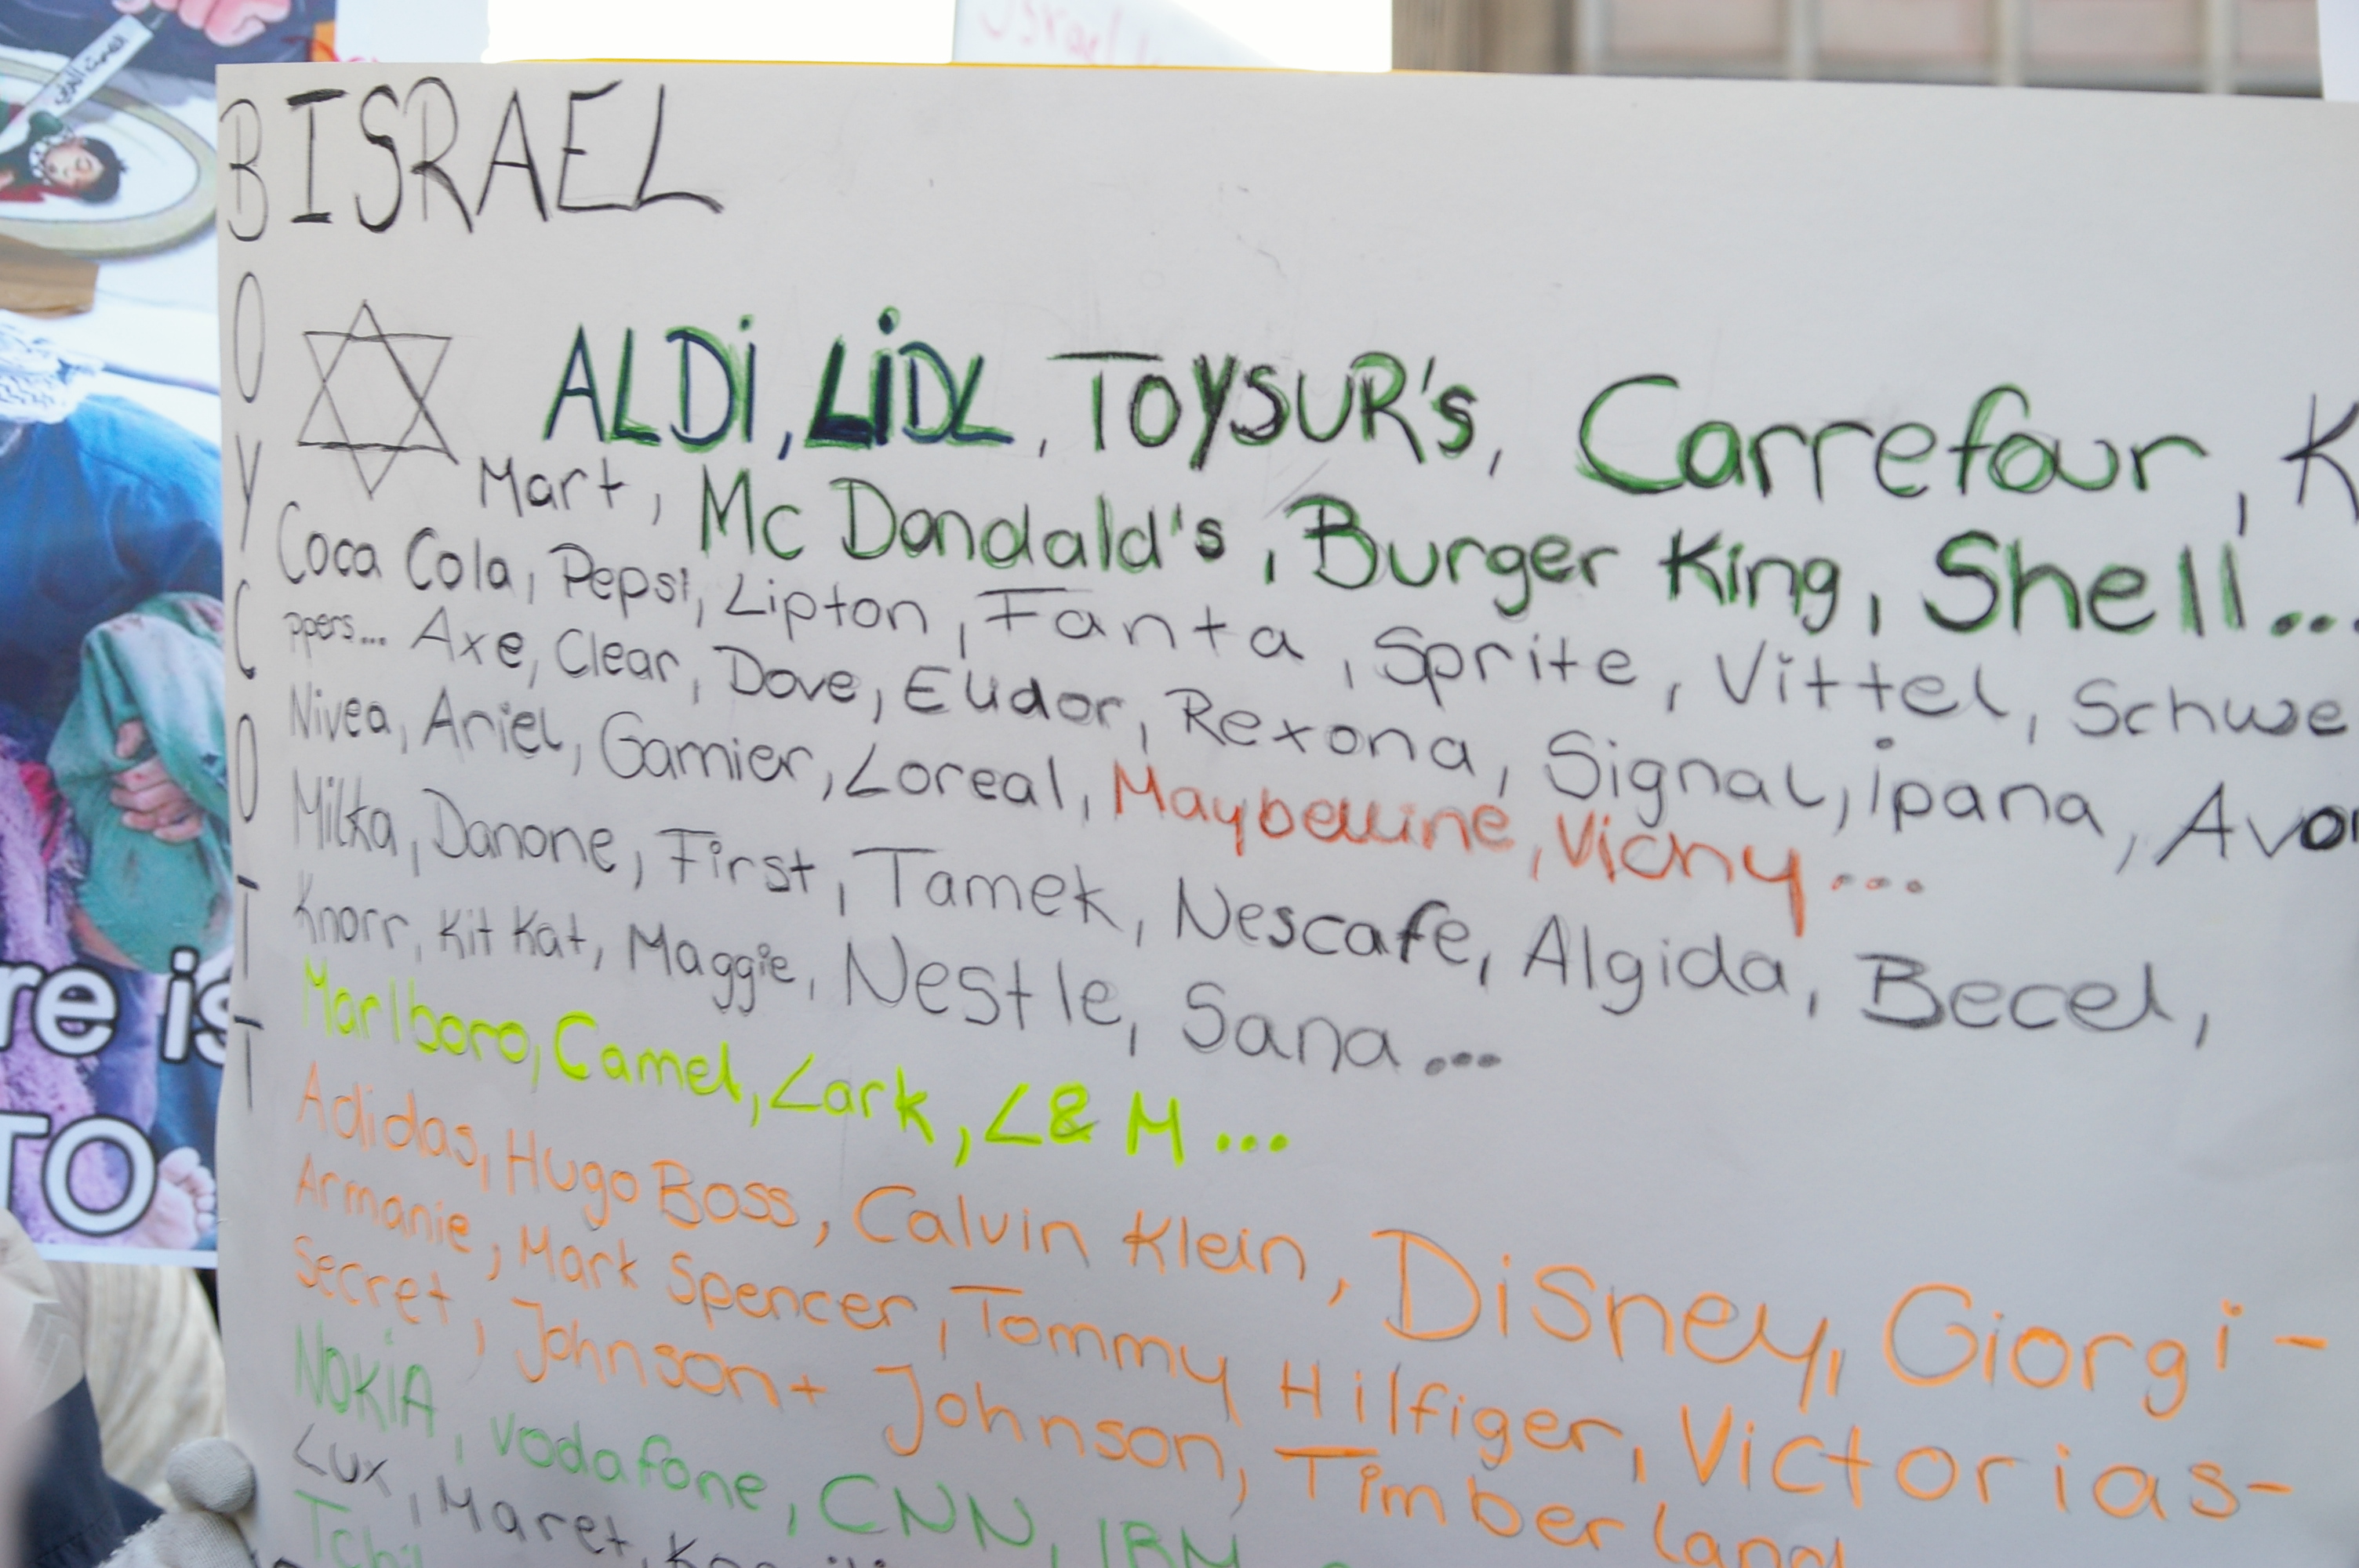 BOYCOTT
ISRAEL
ALDi, LiDL, TOYSUR's, Carrefour, K
Mart, Mc Dondald's, Burger King, Shell...
Coca Cola, Pepsi, Lipton, Fanta, Sprite, Vittel, Schwe
ppers... Axe, Clear, Dove, Elidor, Rexona, Signal, ipana, Avon
Nivea, Ariel, Garnier, Loreal, Maybelline, Vichy...
Milka, Danone, First, Tamek, Nescafe, Algida, Becel,
Knorr, Kit Kat, Maggie, Nestle, Sana...
Marlboro, Camel, Lark, L&M...
Adidas, Hugo Boss, Calvin Klein, Disney, Giorgi-
Armanie, Mark Spencer, Tommy Hilfiger, Victorias-
Secret, Johnson+ Johnson, Timberland
NOKiA, Vodafone, CNN, IBM
Lux, Maret,
re is
TO
Israel